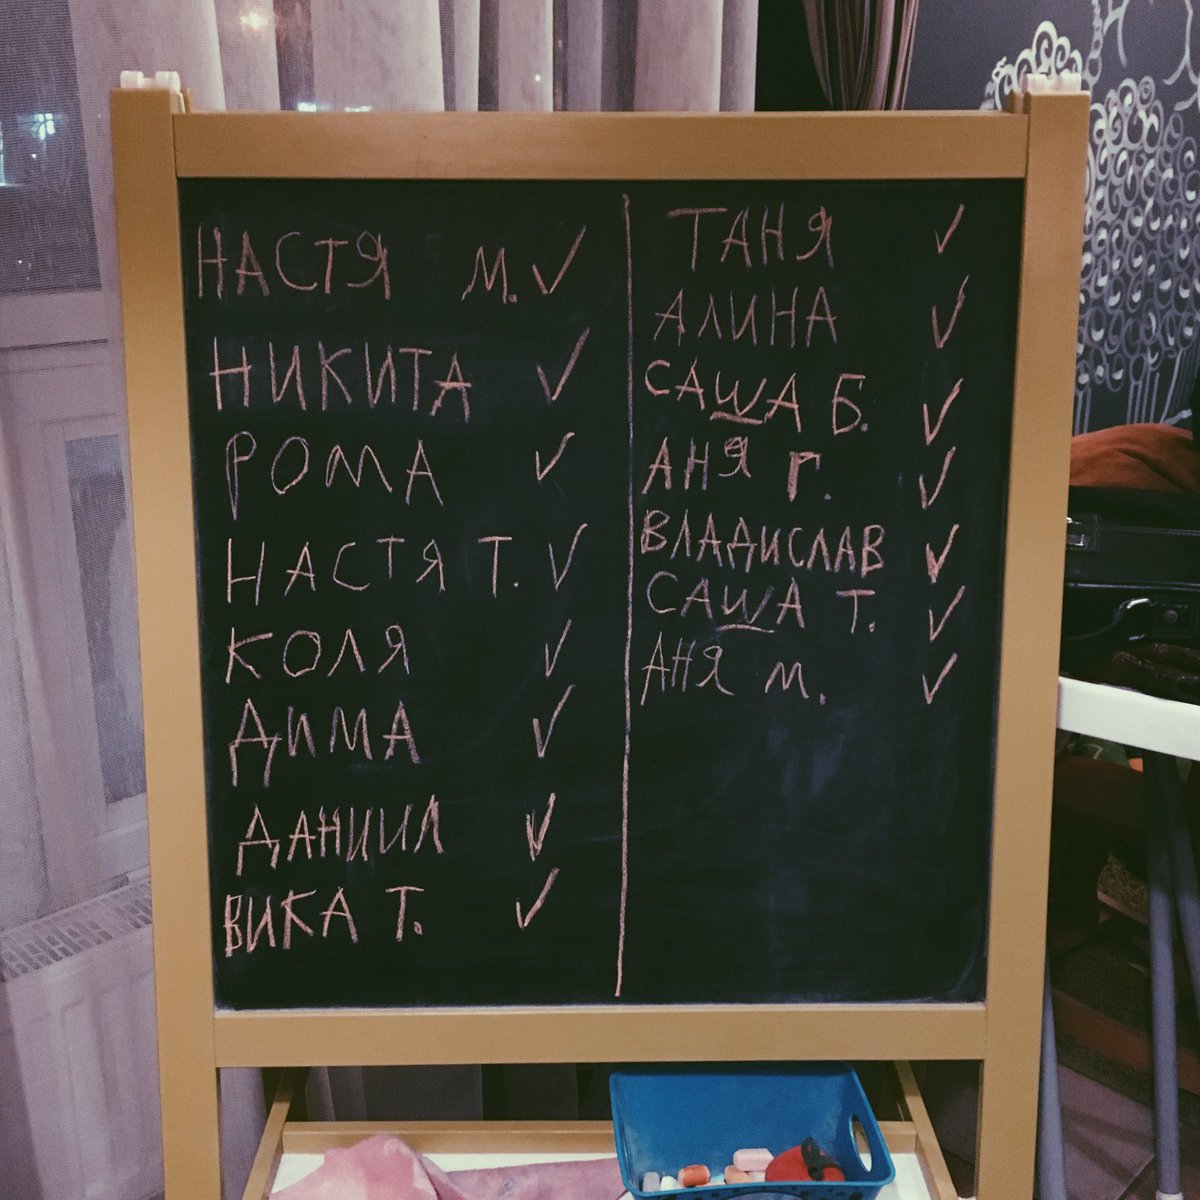 НАСТЯ М. ✓
НИКИТА ✓
РОМА ✓
НАСТЯ Т. ✓
КОЛЯ ✓
ДИМА ✓
ДАНИИЛ ✓
ВИКА Т. ✓
ТАНЯ ✓
АЛИНА ✓
САША Б. ✓
АНЯ Г. ✓
ВЛАДИСЛАВ ✓
САША Т. ✓
АНЯ М. ✓